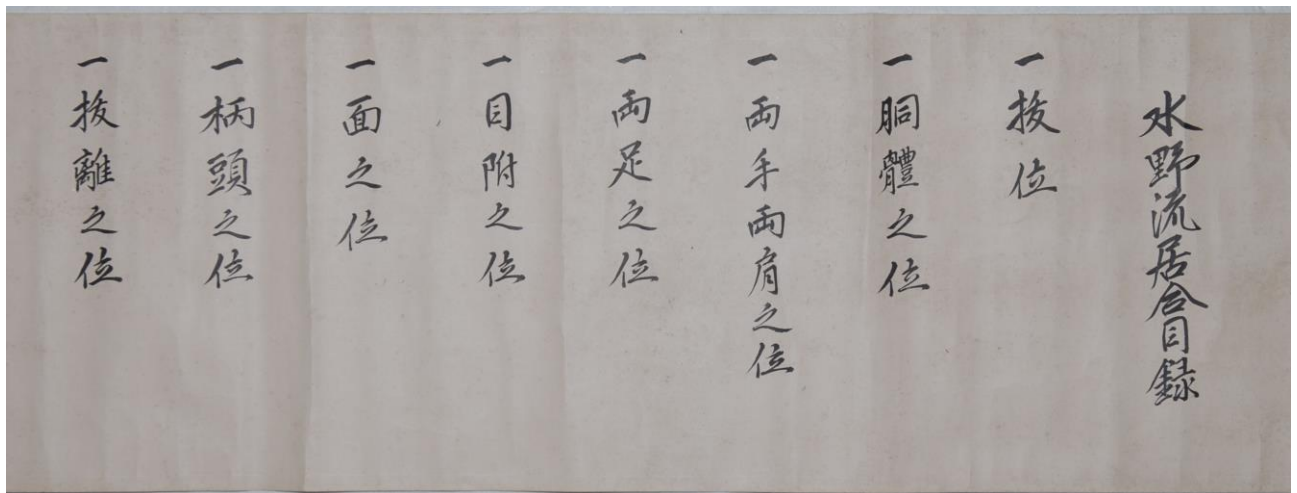 水野流居合目録
一抜位
一胴體之位
一両手両肩之位
一両足之位
一目附之位
一面之位
一柄頭之位
一抜離之位